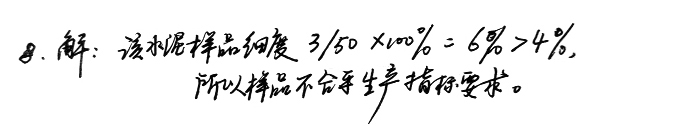 8. 解：该水泥样品细度 3/50×100%=6%>4%,
所以样品不合乎生产指标要求。